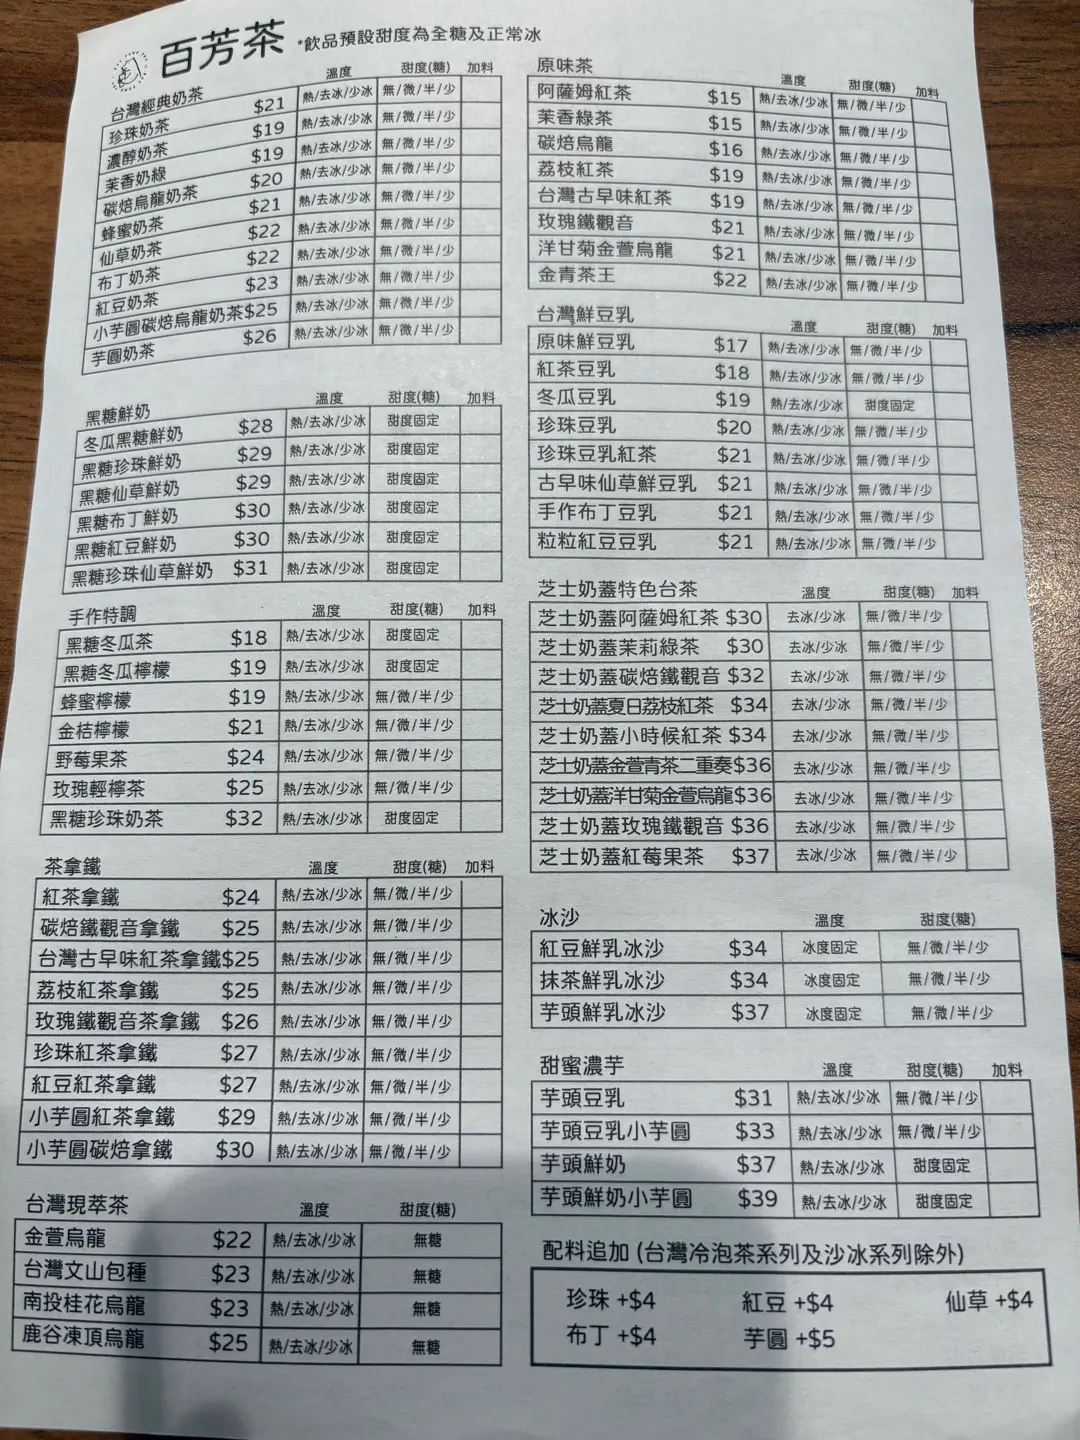 百芳茶 *飲品預設甜度為全糖及正常冰
台灣經典奶茶 溫度 甜度(糖) 加料
珍珠奶茶 $21 熱/去冰/少冰 無/微/半/少
濃醇奶茶 $19 熱/去冰/少冰 無/微/半/少
茉香奶綠 $19 熱/去冰/少冰 無/微/半/少
碳焙烏龍奶茶 $20 熱/去冰/少冰 無/微/半/少
蜂蜜奶茶 $21 熱/去冰/少冰 無/微/半/少
仙草奶茶 $22 熱/去冰/少冰 無/微/半/少
布丁奶茶 $22 熱/去冰/少冰 無/微/半/少
紅豆奶茶 $23 熱/去冰/少冰 無/微/半/少
小芋圓碳焙烏龍奶茶$25 熱/去冰/少冰 無/微/半/少
芋圓奶茶 $26 熱/去冰/少冰 無/微/半/少
黑糖鮮奶 溫度 甜度(糖) 加料
冬瓜黑糖鮮奶 $28 熱/去冰/少冰 甜度固定
黑糖珍珠鮮奶 $29 熱/去冰/少冰 甜度固定
黑糖仙草鮮奶 $29 熱/去冰/少冰 甜度固定
黑糖布丁鮮奶 $30 熱/去冰/少冰 甜度固定
黑糖紅豆鮮奶 $30 熱/去冰/少冰 甜度固定
黑糖珍珠仙草鮮奶 $31 熱/去冰/少冰 甜度固定
手作特調 溫度 甜度(糖) 加料
黑糖冬瓜茶 $18 熱/去冰/少冰 甜度固定
黑糖冬瓜檸檬 $19 熱/去冰/少冰 甜度固定
蜂蜜檸檬 $19 熱/去冰/少冰 無/微/半/少
金桔檸檬 $21 熱/去冰/少冰 無/微/半/少
野莓果茶 $24 熱/去冰/少冰 無/微/半/少
玫瑰輕檸茶 $25 熱/去冰/少冰 無/微/半/少
黑糖珍珠奶茶 $32 熱/去冰/少冰 甜度固定
茶拿鐵 溫度 甜度(糖) 加料
紅茶拿鐵 $24 熱/去冰/少冰 無/微/半/少
碳焙鐵觀音拿鐵 $25 熱/去冰/少冰 無/微/半/少
台灣古早味紅茶拿鐵$25 熱/去冰/少冰 無/微/半/少
荔枝紅茶拿鐵 $25 熱/去冰/少冰 無/微/半/少
玫瑰鐵觀音茶拿鐵 $26 熱/去冰/少冰 無/微/半/少
珍珠紅茶拿鐵 $27 熱/去冰/少冰 無/微/半/少
紅豆紅茶拿鐵 $27 熱/去冰/少冰 無/微/半/少
小芋圓紅茶拿鐵 $29 熱/去冰/少冰 無/微/半/少
小芋圓碳焙拿鐵 $30 熱/去冰/少冰 無/微/半/少
台灣現萃茶 溫度 甜度(糖)
金萱烏龍 $22 熱/去冰/少冰 無糖
台灣文山包種 $23 熱/去冰/少冰 無糖
南投桂花烏龍 $23 熱/去冰/少冰 無糖
鹿谷凍頂烏龍 $25 熱/去冰/少冰 無糖
原味茶 溫度 甜度(糖) 加料
阿薩姆紅茶 $15 熱/去冰/少冰 無/微/半/少
茉香綠茶 $15 熱/去冰/少冰 無/微/半/少
碳焙烏龍 $16 熱/去冰/少冰 無/微/半/少
荔枝紅茶 $19 熱/去冰/少冰 無/微/半/少
台灣古早味紅茶 $19 熱/去冰/少冰 無/微/半/少
玫瑰鐵觀音 $21 熱/去冰/少冰 無/微/半/少
洋甘菊金萱烏龍 $21 熱/去冰/少冰 無/微/半/少
金青茶王 $22 熱/去冰/少冰 無/微/半/少
台灣鮮豆乳 溫度 甜度(糖) 加料
原味鮮豆乳 $17 熱/去冰/少冰 無/微/半/少
紅茶豆乳 $18 熱/去冰/少冰 無/微/半/少
冬瓜豆乳 $19 熱/去冰/少冰 甜度固定
珍珠豆乳 $20 熱/去冰/少冰 無/微/半/少
珍珠豆乳紅茶 $21 熱/去冰/少冰 無/微/半/少
古早味仙草鮮豆乳 $21 熱/去冰/少冰 無/微/半/少
手作布丁豆乳 $21 熱/去冰/少冰 無/微/半/少
粒粒紅豆豆乳 $21 熱/去冰/少冰 無/微/半/少
芝士奶蓋特色台茶 溫度 甜度(糖) 加料
芝士奶蓋阿薩姆紅茶 $30 去冰/少冰 無/微/半/少
芝士奶蓋茉莉綠茶 $30 去冰/少冰 無/微/半/少
芝士奶蓋碳焙鐵觀音 $32 去冰/少冰 無/微/半/少
芝士奶蓋夏日荔枝紅茶 $34 去冰/少冰 無/微/半/少
芝士奶蓋小時候紅茶 $34 去冰/少冰 無/微/半/少
芝士奶蓋金萱青茶二重奏$36 去冰/少冰 無/微/半/少
芝士奶蓋洋甘菊金萱烏龍$36 去冰/少冰 無/微/半/少
芝士奶蓋玫瑰鐵觀音 $36 去冰/少冰 無/微/半/少
芝士奶蓋紅莓果茶 $37 去冰/少冰 無/微/半/少
冰沙 溫度 甜度(糖)
紅豆鮮乳冰沙 $34 冰度固定 無/微/半/少
抹茶鮮乳冰沙 $34 冰度固定 無/微/半/少
芋頭鮮乳冰沙 $37 冰度固定 無/微/半/少
甜蜜濃芋 溫度 甜度(糖) 加料
芋頭豆乳 $31 熱/去冰/少冰 無/微/半/少
芋頭豆乳小芋圓 $33 熱/去冰/少冰 無/微/半/少
芋頭鮮奶 $37 熱/去冰/少冰 甜度固定
芋頭鮮奶小芋圓 $39 熱/去冰/少冰 甜度固定
配料追加 (台灣冷泡茶系列及沙冰系列除外)
珍珠 +$4 紅豆 +$4 仙草 +$4
布丁 +$4 芋圓 +$5